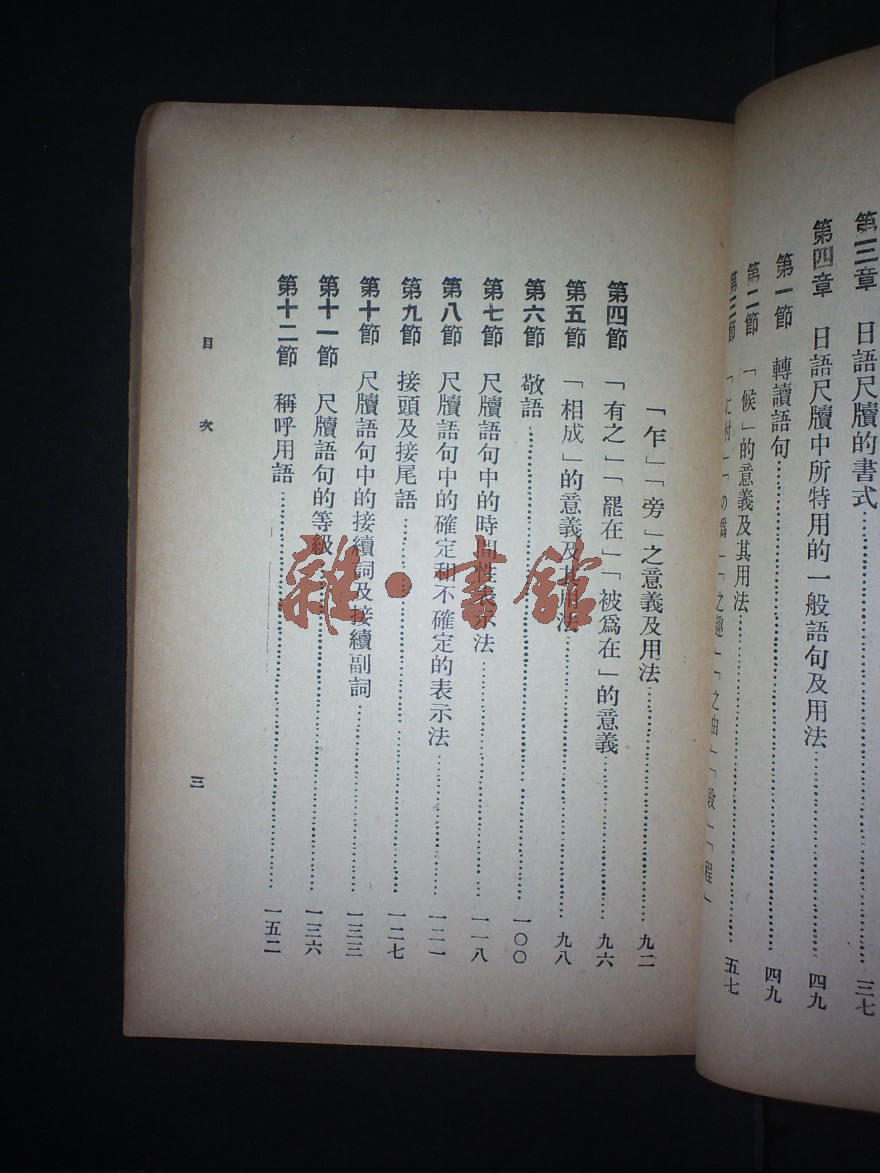 第三章 日語尺牘的書式…………三七
第四章 日語尺牘中所特用的一般語句及用法…………四九
第一節 轉讀語句…………四九
第二節 「候」的意義及其用法…………五七
第三節 「に付」「の爲」「之趣」「之由」「段」「程」
「乍」「旁」之意義及用法…………九二
第四節 「有之」「罷在」「被爲在」的意義…………九六
第五節 「相成」的意義及其用法…………九八
第六節 敬語…………一〇〇
第七節 尺牘語句中的時間性表示法…………一一八
第八節 尺牘語句中的確定和不確定的表示法…………一二一
第九節 接頭及接尾語…………一二七
第十節 尺牘語句中的接續詞及接續副詞…………一三三
第十一節 尺牘語句的等級…………一三六
第十二節 稱呼用語…………一五二
目次
三
雜·書館